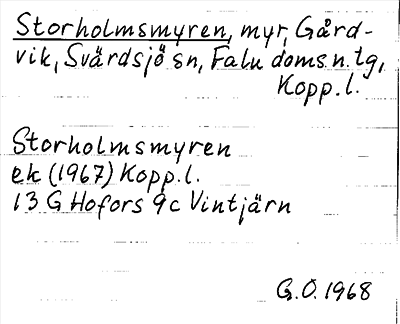 Storholmsmyren, myr, Gård-
vik, Svärdsjö sn, Falu doms.n.tg,
Kopp.l.
Storholmsmyren
ek (1967) Kopp.l.
13 G Hofors 9c Vintjärn
G.O. 1968